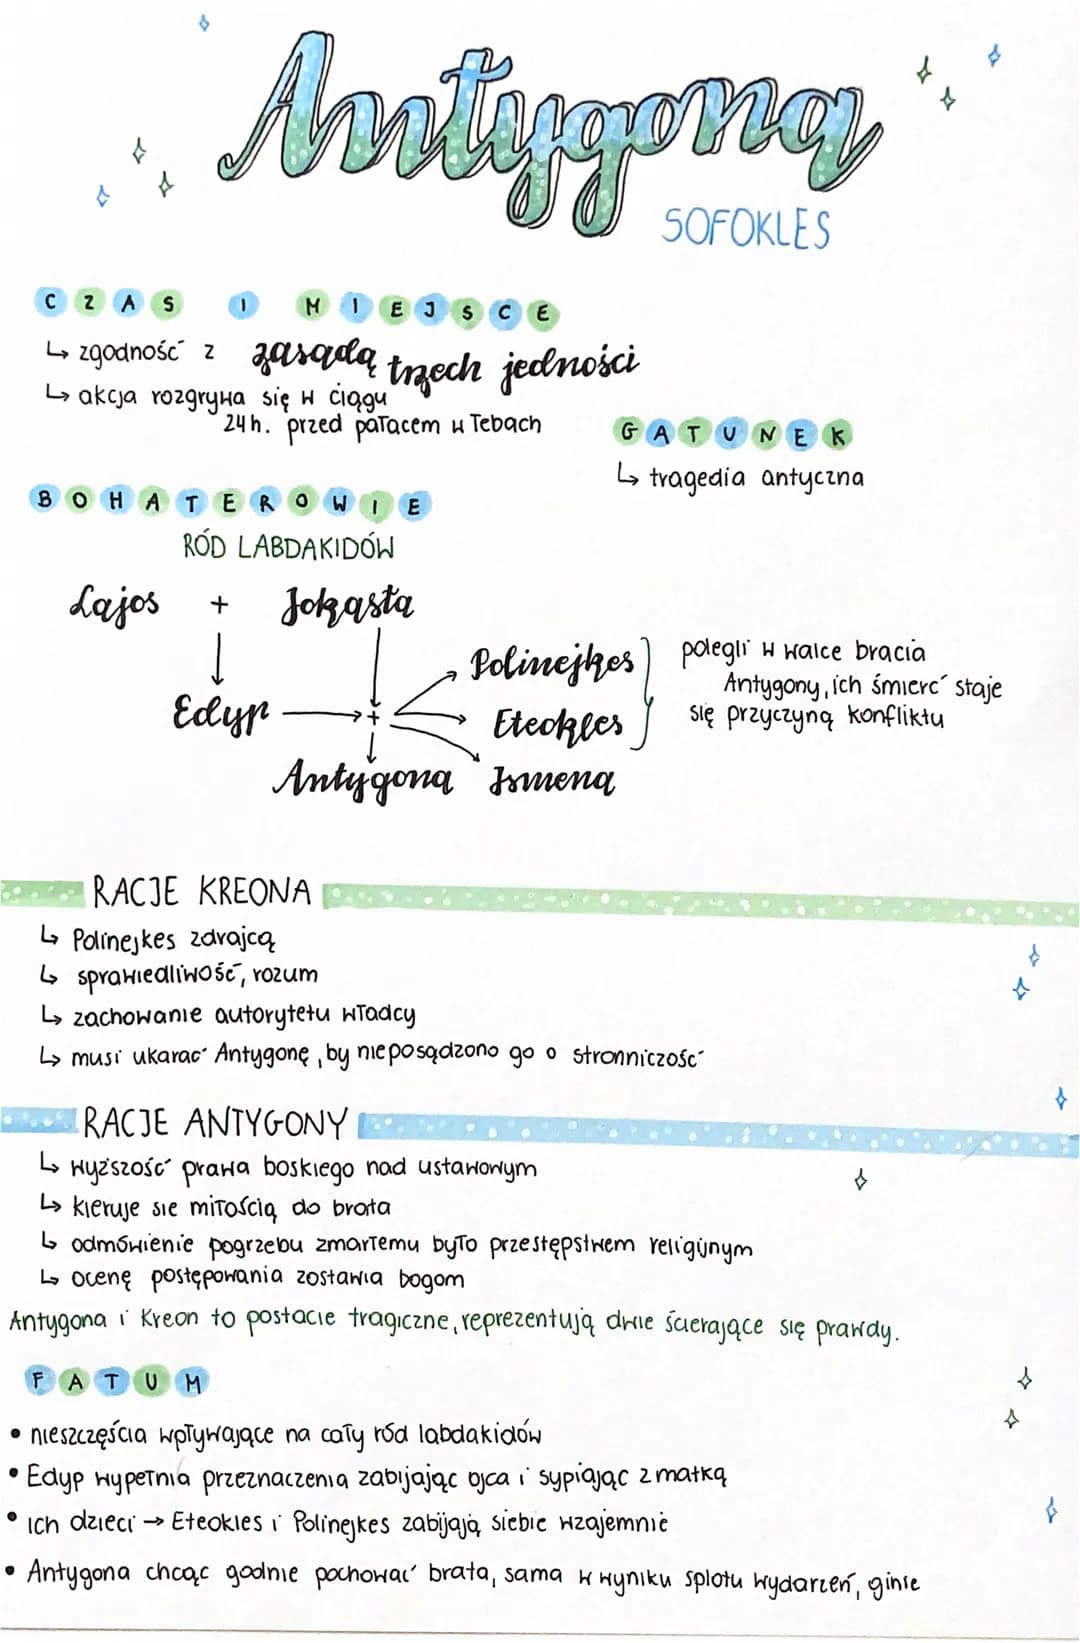 Antygona
SOFOKLES
CZAS I MIEJSCE
↳ zgodność z zasadą trzech jedności
↳ akcja rozgrywa się w ciągu
24h. przed pałacem w Tebach
GATUNEK
↳ tragedia antyczna
BOHATEROWIE
RÓD LABDAKIDÓW
Lajos + Jokasta
Polinejkes
polegli w walce bracia
Antygony, ich śmierć staje
się przyczyną konfliktu
Edyp → + Eteokles
Antygona Ismena
RACJE KREONA
↳ Polinejkes zdrajcą
↳ sprawiedliwość, rozum
↳ zachowanie autorytetu władcy
↳ musi ukarać Antygonę, by nie posądzono go o stronniczość
RACJE ANTYGONY
↳ wyższość prawa boskiego nad ustawowym
↳ kieruje sie miłością do brata
↳ odmówienie pogrzebu zmarłemu było przestępstwem religijnym
↳ ocenę postępowania zostawia bogom
Antygona i Kreon to postacie tragiczne, reprezentują dwie ścierające się prawdy.
FATUM
• nieszczęścia wpływające na cały ród labdakidów
• Edyp wypełnia przeznaczenia zabijając ojca i sypiając z matką
• ich dzieci → Eteokles i Polinejkes zabijają siebie wzajemnie
• Antygona chcąc godnie pochować brata, sama w wyniku splotu wydarzeń, ginie